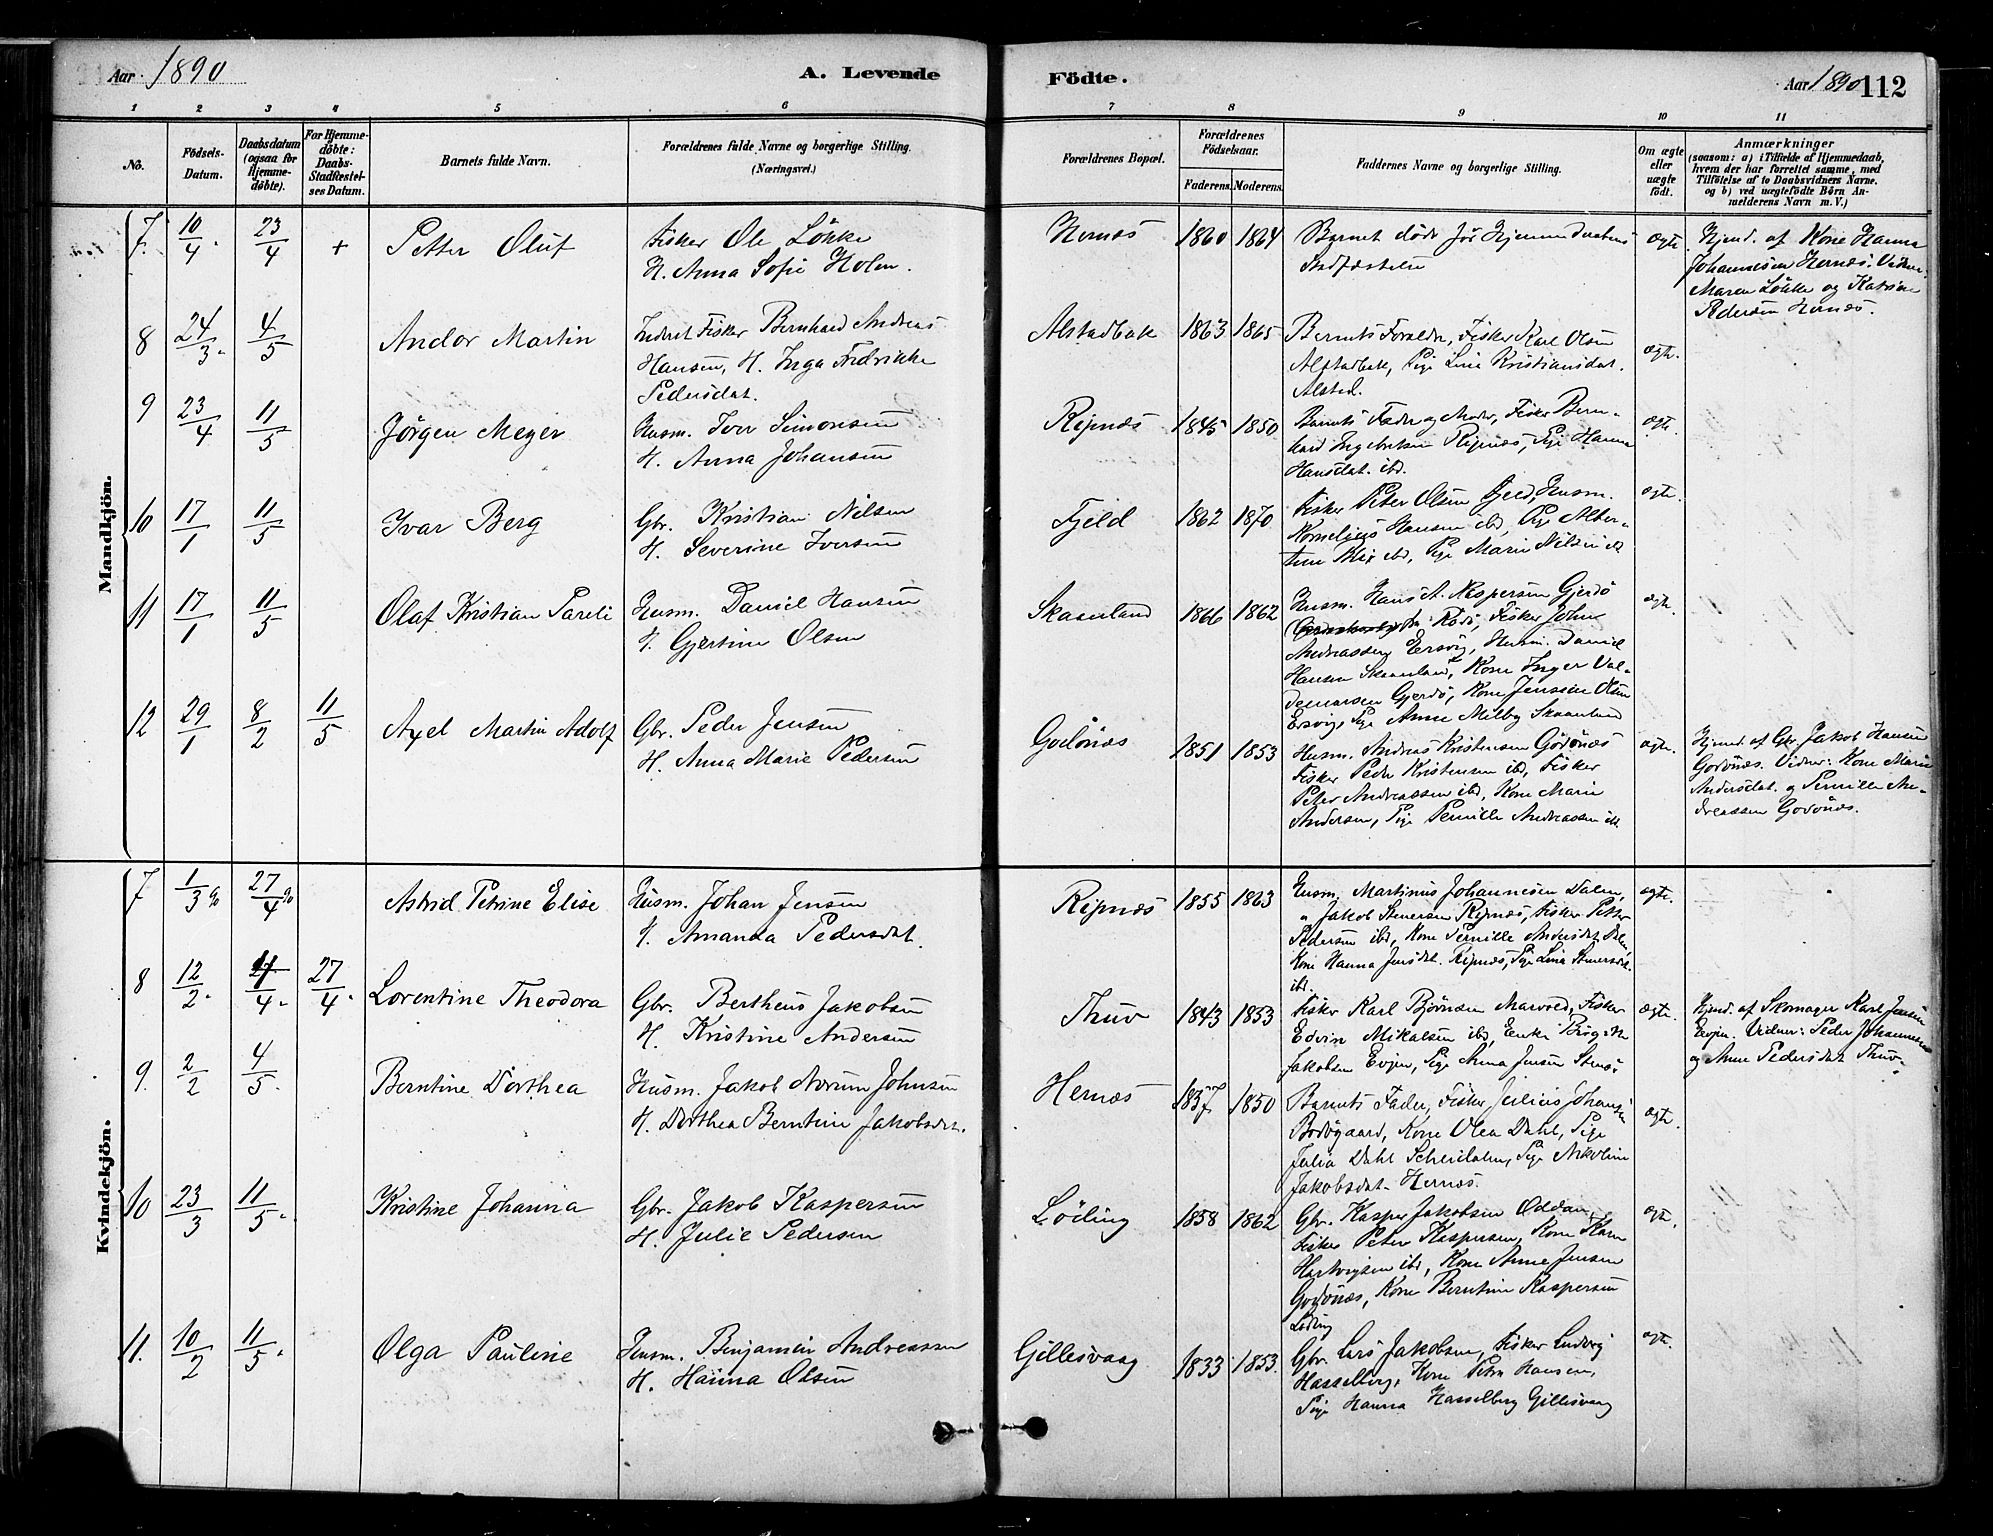 Aar 1890
A. Levende
Födte.
Aar 1890 112
1 2 3 4 5 6 7 8 9 10 11
No.
Födsels-Datum.
Daabsdatum (ogsaa for Hjemme-döbte).
For Hjemme-döbte: Daabs-Stadfæstel-ses Datum.
Barnets fulde Navn.
Forældrenes fulde Navne og borgerlige Stilling. (Næringsvei.)
Forældrenes Bopæl.
Forældrenes Födselsaar.
Faderens. Moderens.
Faddernes Navne og borgerlige Stilling.
Om ægte eller uægte födt.
Anmærkninger
(saasom: a) i Tilfælde af Hjemmedaab, hvem der har forrettet samme, med Tilföielse af to Daabsvidners Navne. og b) ved uægtefödte Börn An-melderens Navn m. V.)
Mandkjön.
7. 10/4. 23/4 + Petter Oluf
Fisker Ole Løkke
H. Anna Sofie Holen.
Hernæs 1860 1864
Barnet døde før Hjemmedaabens
Stadfæstelse
ægte
Hjemd. af Kone Hanna
Johannesen Hernæs. Vidner
Maren Løkke og Katrine
Pedersen Hernæs.
8 24/3. 4/5 Andor Martin
Inderst Fisker Bernhard Andreas
Hansen, H. Inga Fredrikke
Pedersdat.
Alstadbak 1863 1865
Barnets Foraldre, Fisker Karl Olsen
Alstadbak, Pige Lina Kristiansdat.
Alsted.
ægte.
9 23/4 11/5 Jörgen Meyer
Husm. Iver Simonsen
H. Anna Johansen
Ripnæs 1845 1850
Barnets Fader og Moder, Fisker Bern-
hard Ingebretsen Ripnæs, Pige Hanna
Hansdat. ibd.
ægte.
10 17/1 11/5 Ivar Berg
Gbr. Kristian Nilsen
H. Severine Iversen
Fjeld 1862 1870
Fisker Peter Olsen Fjeld, Husm.
Kornelius Hansen ibd, Pige Alber-
tine ibd, Pige Marie Nilsen ibd
ægte.
11 17/1 11/5 Olaf Kristian Pareli
Husm. Daniel Hansen
H. Gjertine Olsen
Skaanland 1866 1862
Husm. Hans A. Kaspersen Gjerdö
Rödö, Fisker John
Andreassen Ersvig, Husm. Daniel
Hansen Skaanland, Kone Inger Val-
demarsen Gjerdö, Kone Jensine Olsen
Ersvig, Pige Anne Melby Skaanland
ægte.
12 29/1 8/2 11/5 Axel Martin Adolf
Gbr. Peder Jensen
H. Anna Marie Pedersen
Godönæs 1851 1853
Husm. Andreas Kristensen Godönæs
Fisker Peder Kristensen ibd, Fisker
Peter Andreassen ibd, Kone Marie
Andersen, Pige Pernille Andreassen ibd
ægte.
Hjemd. af Gbr. Jakob Hansen
Godönæs. Vidner: Kone Marie
Andersdat. og Pernille An-
dreassen Godönæs.
Kvindekjön.
7 1/3 90 27/4 90 Astrid Petrine Elise
Husm. Johan Jensen
H. Amanda Pedersdat.
Ripnæs 1855 1863
Husm. Martinus Johannesen Dalen,
" Jakob Stenersen Ripnæs, Fisker Petter
Pedersen ibd, Kone Pernille Andersdat. Dalen,
Kone Hanna Jensdat. Ripnæs, Pige Lina Stenersdat.
ibd.
ægte.
8 12/2. 4. 27/4. Lorentine Theodora
Gbr. Bertheus Jakobsen
H. Kristine Andersen
Thuv 1843 1853
Fisker Karl Björnsen Marvold, Fisker
Edvin Mikalsen ibd, Enke
Jakobsen Evjen, Pige Anna Jensen
ægte.
Hjemd. af Skomager Karl Jensen
Evjen. Vidner: Peder Johannesen
og Anne Pedersdat Thuv.
9. 2/2 4/5. Berntine Dorthea
Husm. Jakob Norum Johnsen
H. Dorthea Berntine Jakobsdat.
Hernæs 1837 1850
Barnets Fader, Fisker Julius Johansen
Bodøgaard, Kone Olea Dahl, Pige
Julia Dahl, Pige Nikoline
Jakobsdat. Hernæs.
ægte.
10 23/3 11/5. Kristine Johanna
Gbr. Jakob Kaspersen
H. Julie Pedersen
Löding 1858 1862
Gbr. Kasper Jakobsen Oddan,
Fisker Peter Kaspersen, Kone Karen
Hartvigsen ibd, Kone Anne Jensen
Godönæs, Kone Berntine Kaspersen
Löding
ægte.
11. 10/2 11/5. Olga Pauline
Husm. Benjamin Andreassen
H. Hanna Olsen
Gillesvaag 1833 1853.
Gbr. Lars Jakobsen, Fisker Ludvig
Hasselberg, Kone Petra Hansen,
Pige Hanna Hasselberg Gillesvaag
ægte.